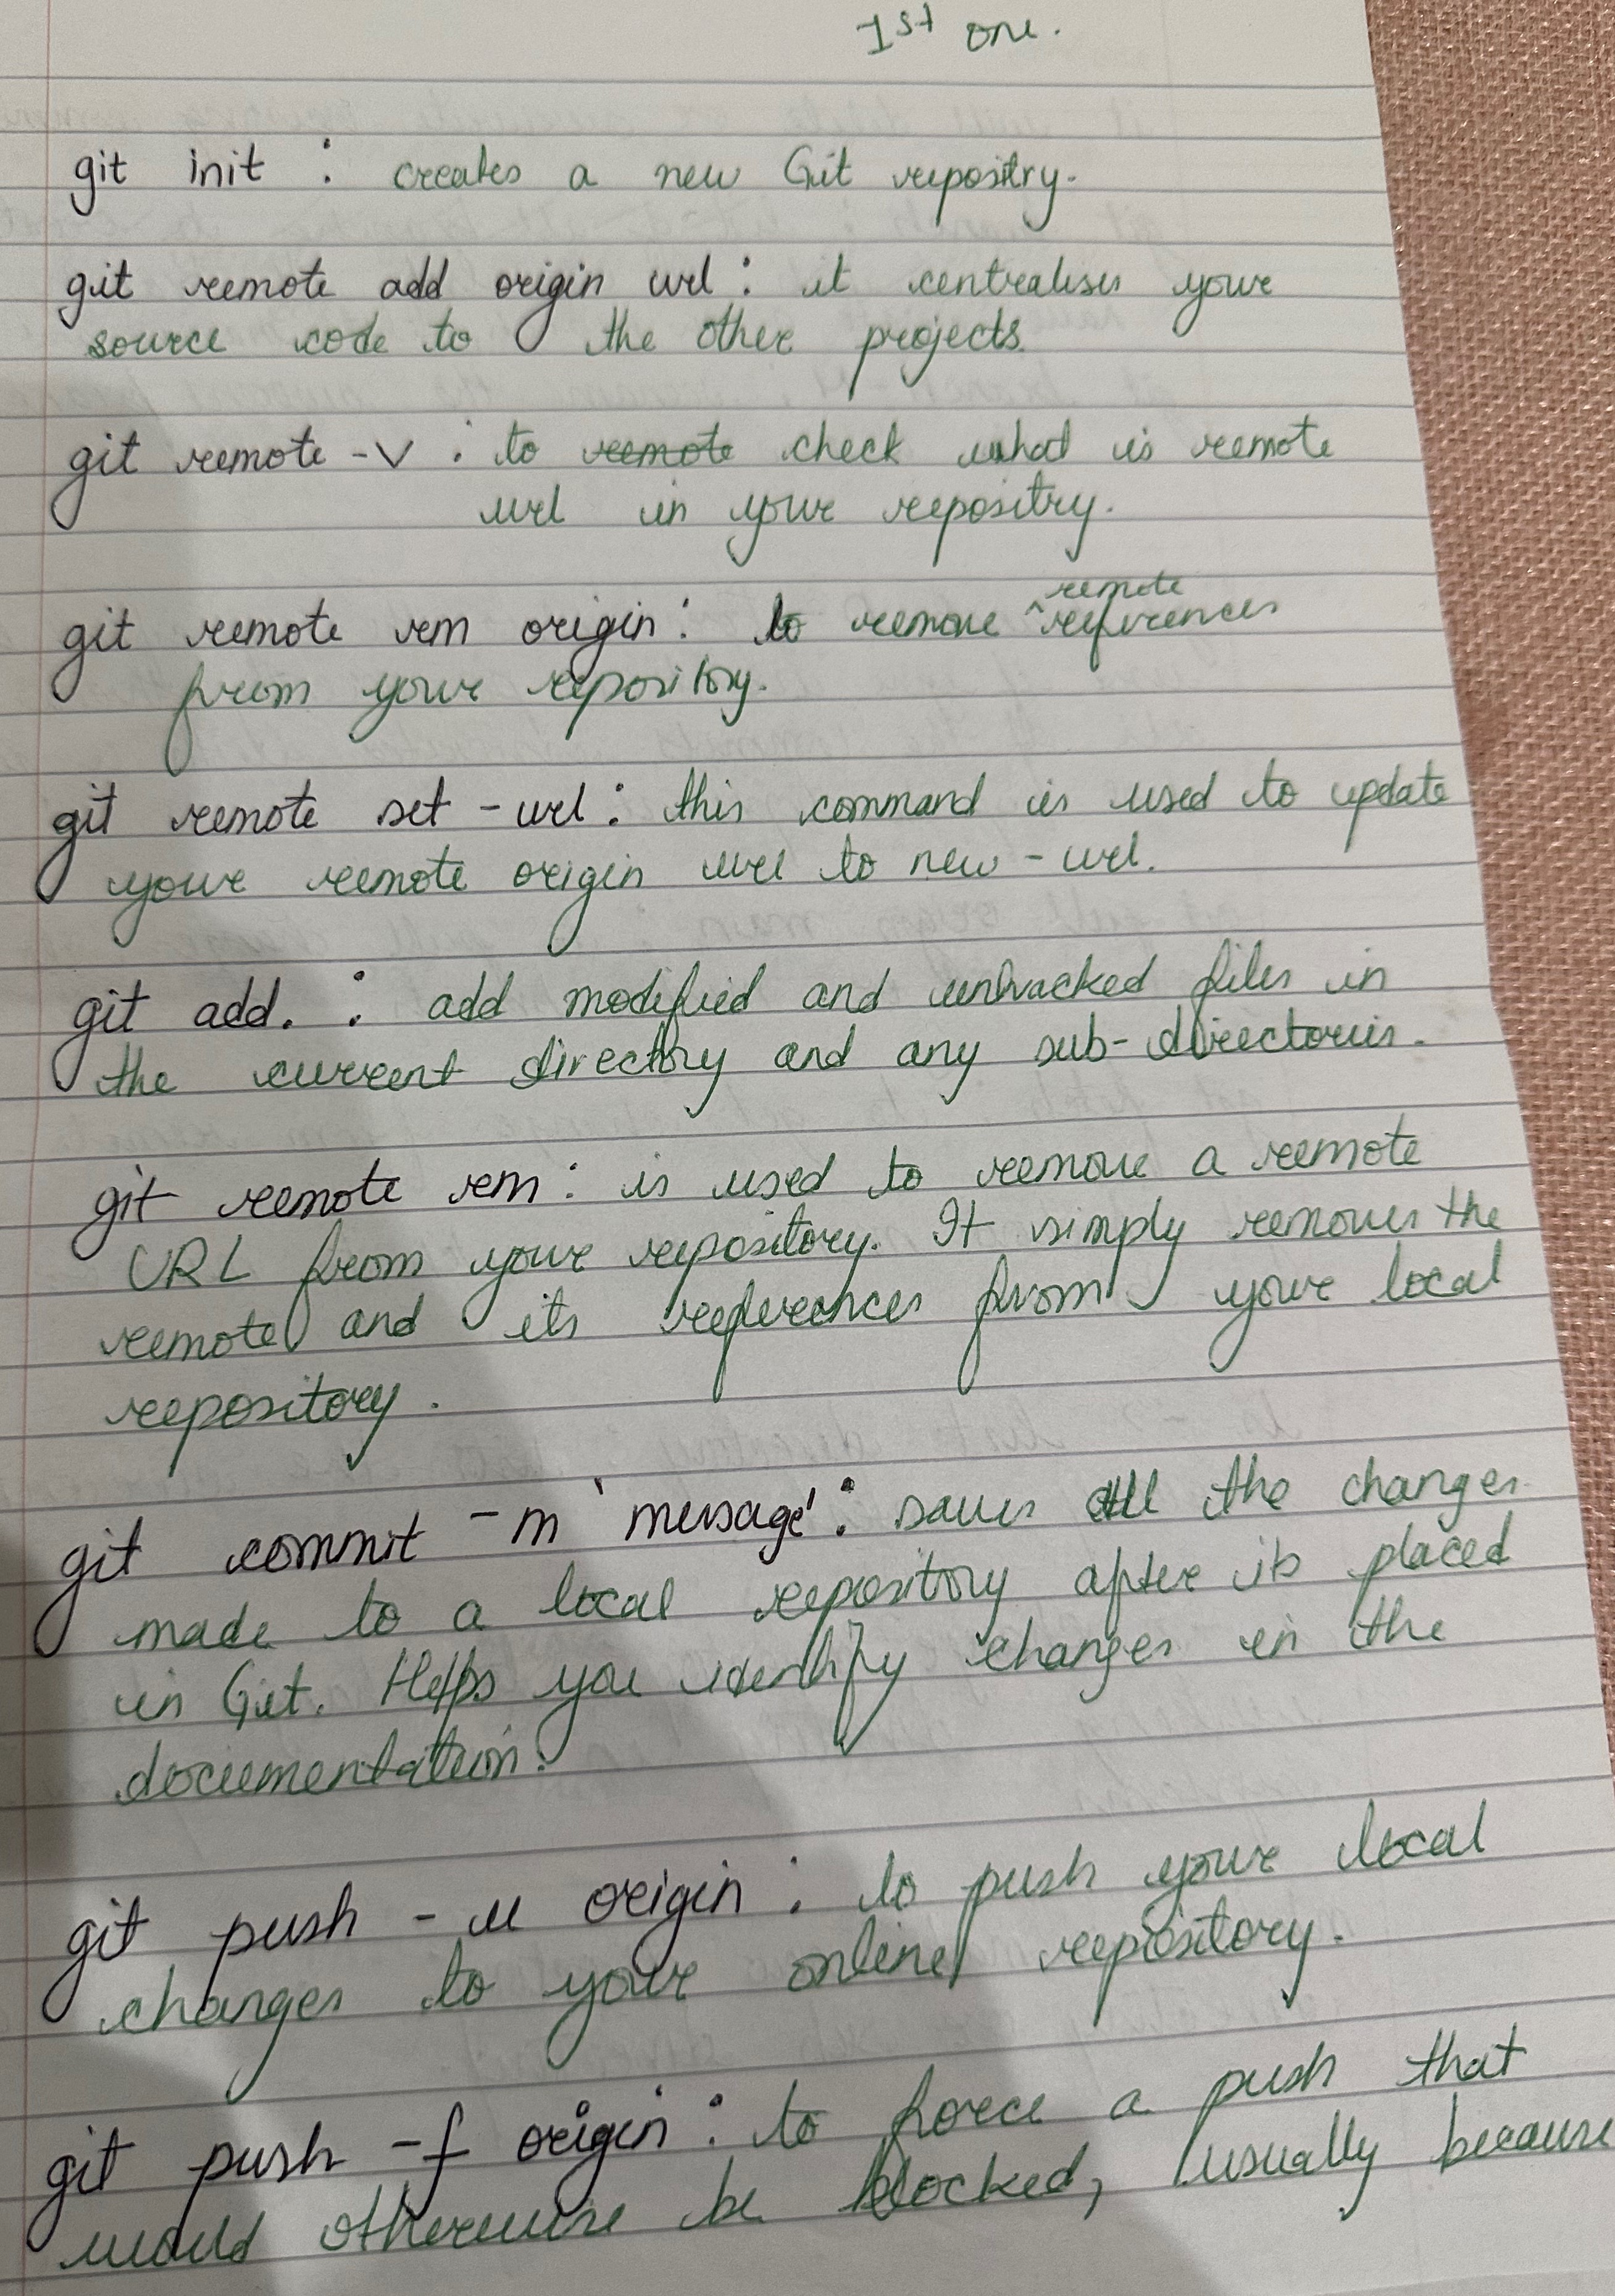 1st one.
git init : creates a new Git repositry.
git remote add origin url : it centralises your
source code to the other projects.
git remote -v : to remote check what is remote
url in your repositry.
remote
git remote rm origin : to remove ^ references
from your repository.
git remote set - url : this command is used to update
your remote origin url to new - url.
git add. : add modified and untracked files in
the current directory and any sub- directories.
git remote rm : is used to remove a remote
URL from your repository. It simply removes the
remote and its references from your local
repository.
git commit -m 'message' : saves all the changes
made to a local repository after its placed
in Git. Helps you identify changes in the
documentation.
git push - u origin : to push your local
changes to your online repository.
git push -f origin : to force a push that
would otherwise be blocked, usually because